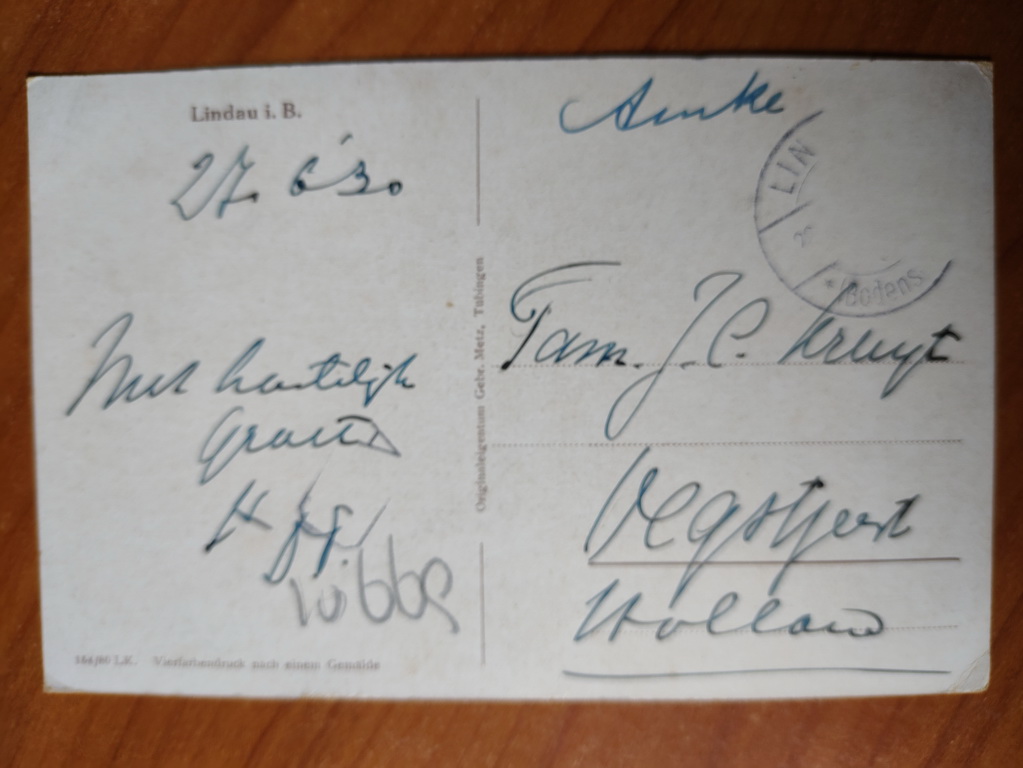 Lindau i. B.
27. 6 30
Met hartelijk
Groet
Wibbe
184/80 L.K. Vierfarbendruck nach einem Gemälde
Originaleigentum Gebr. Metz, Tübingen
Anke
LIN
(Bodens
Fam. J. C. Kruyt
Oegstgeest
Holland